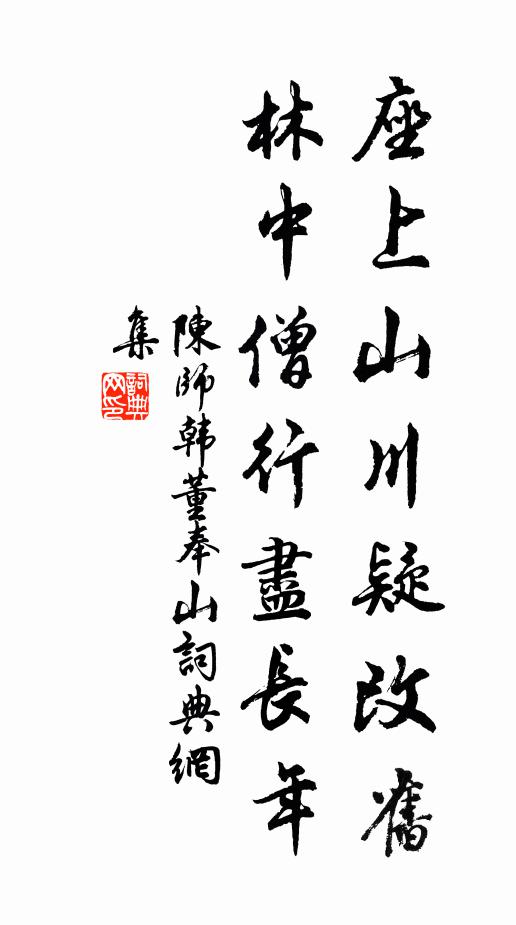 座上山川疑改舊
林中僧行盡長年
陳師韓董奉山詞典網
集
詞典網印